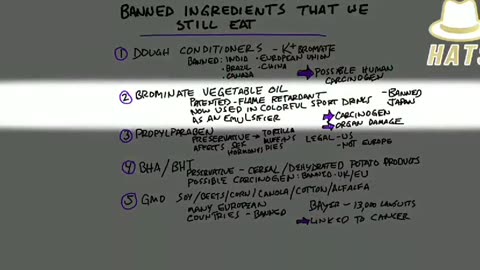 BANNED INGREDIENTS THAT WE
STILL EAT
HATS
① DOUGH CONDITIONERS - K+ BROMATE
BANNED: INDIA · EUROPEAN UNION
· BRAZIL · CHINA
· CANADA
→ POSSIBLE HUMAN
CARCINOGEN
② BROMINATE VEGETABLE OIL - BANNED
JAPAN
PATENTED - FLAME RETARDANT
NOW USED IN COLORFUL SPORT DRINKS
AS AN EMULSIFIER
→ CARCINOGEN
→ ORGAN DAMAGE
③ PROPYLPARABEN
PRESERVATIVE → TORTILLA
MUFFINS
PIES
AFFECTS SEX
HORMONES
LEGAL - US
- NOT EUROPE
④ BHA/BHT
PRESERVATIVE - CEREAL/DEHYDRATED POTATO PRODUCTS
POSSIBLE CARCINOGEN: BANNED: UK/EU
⑤ GMO SOY/BEETS/CORN/CANOLA/COTTON/ALFALFA
MANY EUROPEAN
COUNTRIES - BANNED
BAYER - 13,000 LAWSUITS
→ LINKED TO CANCER